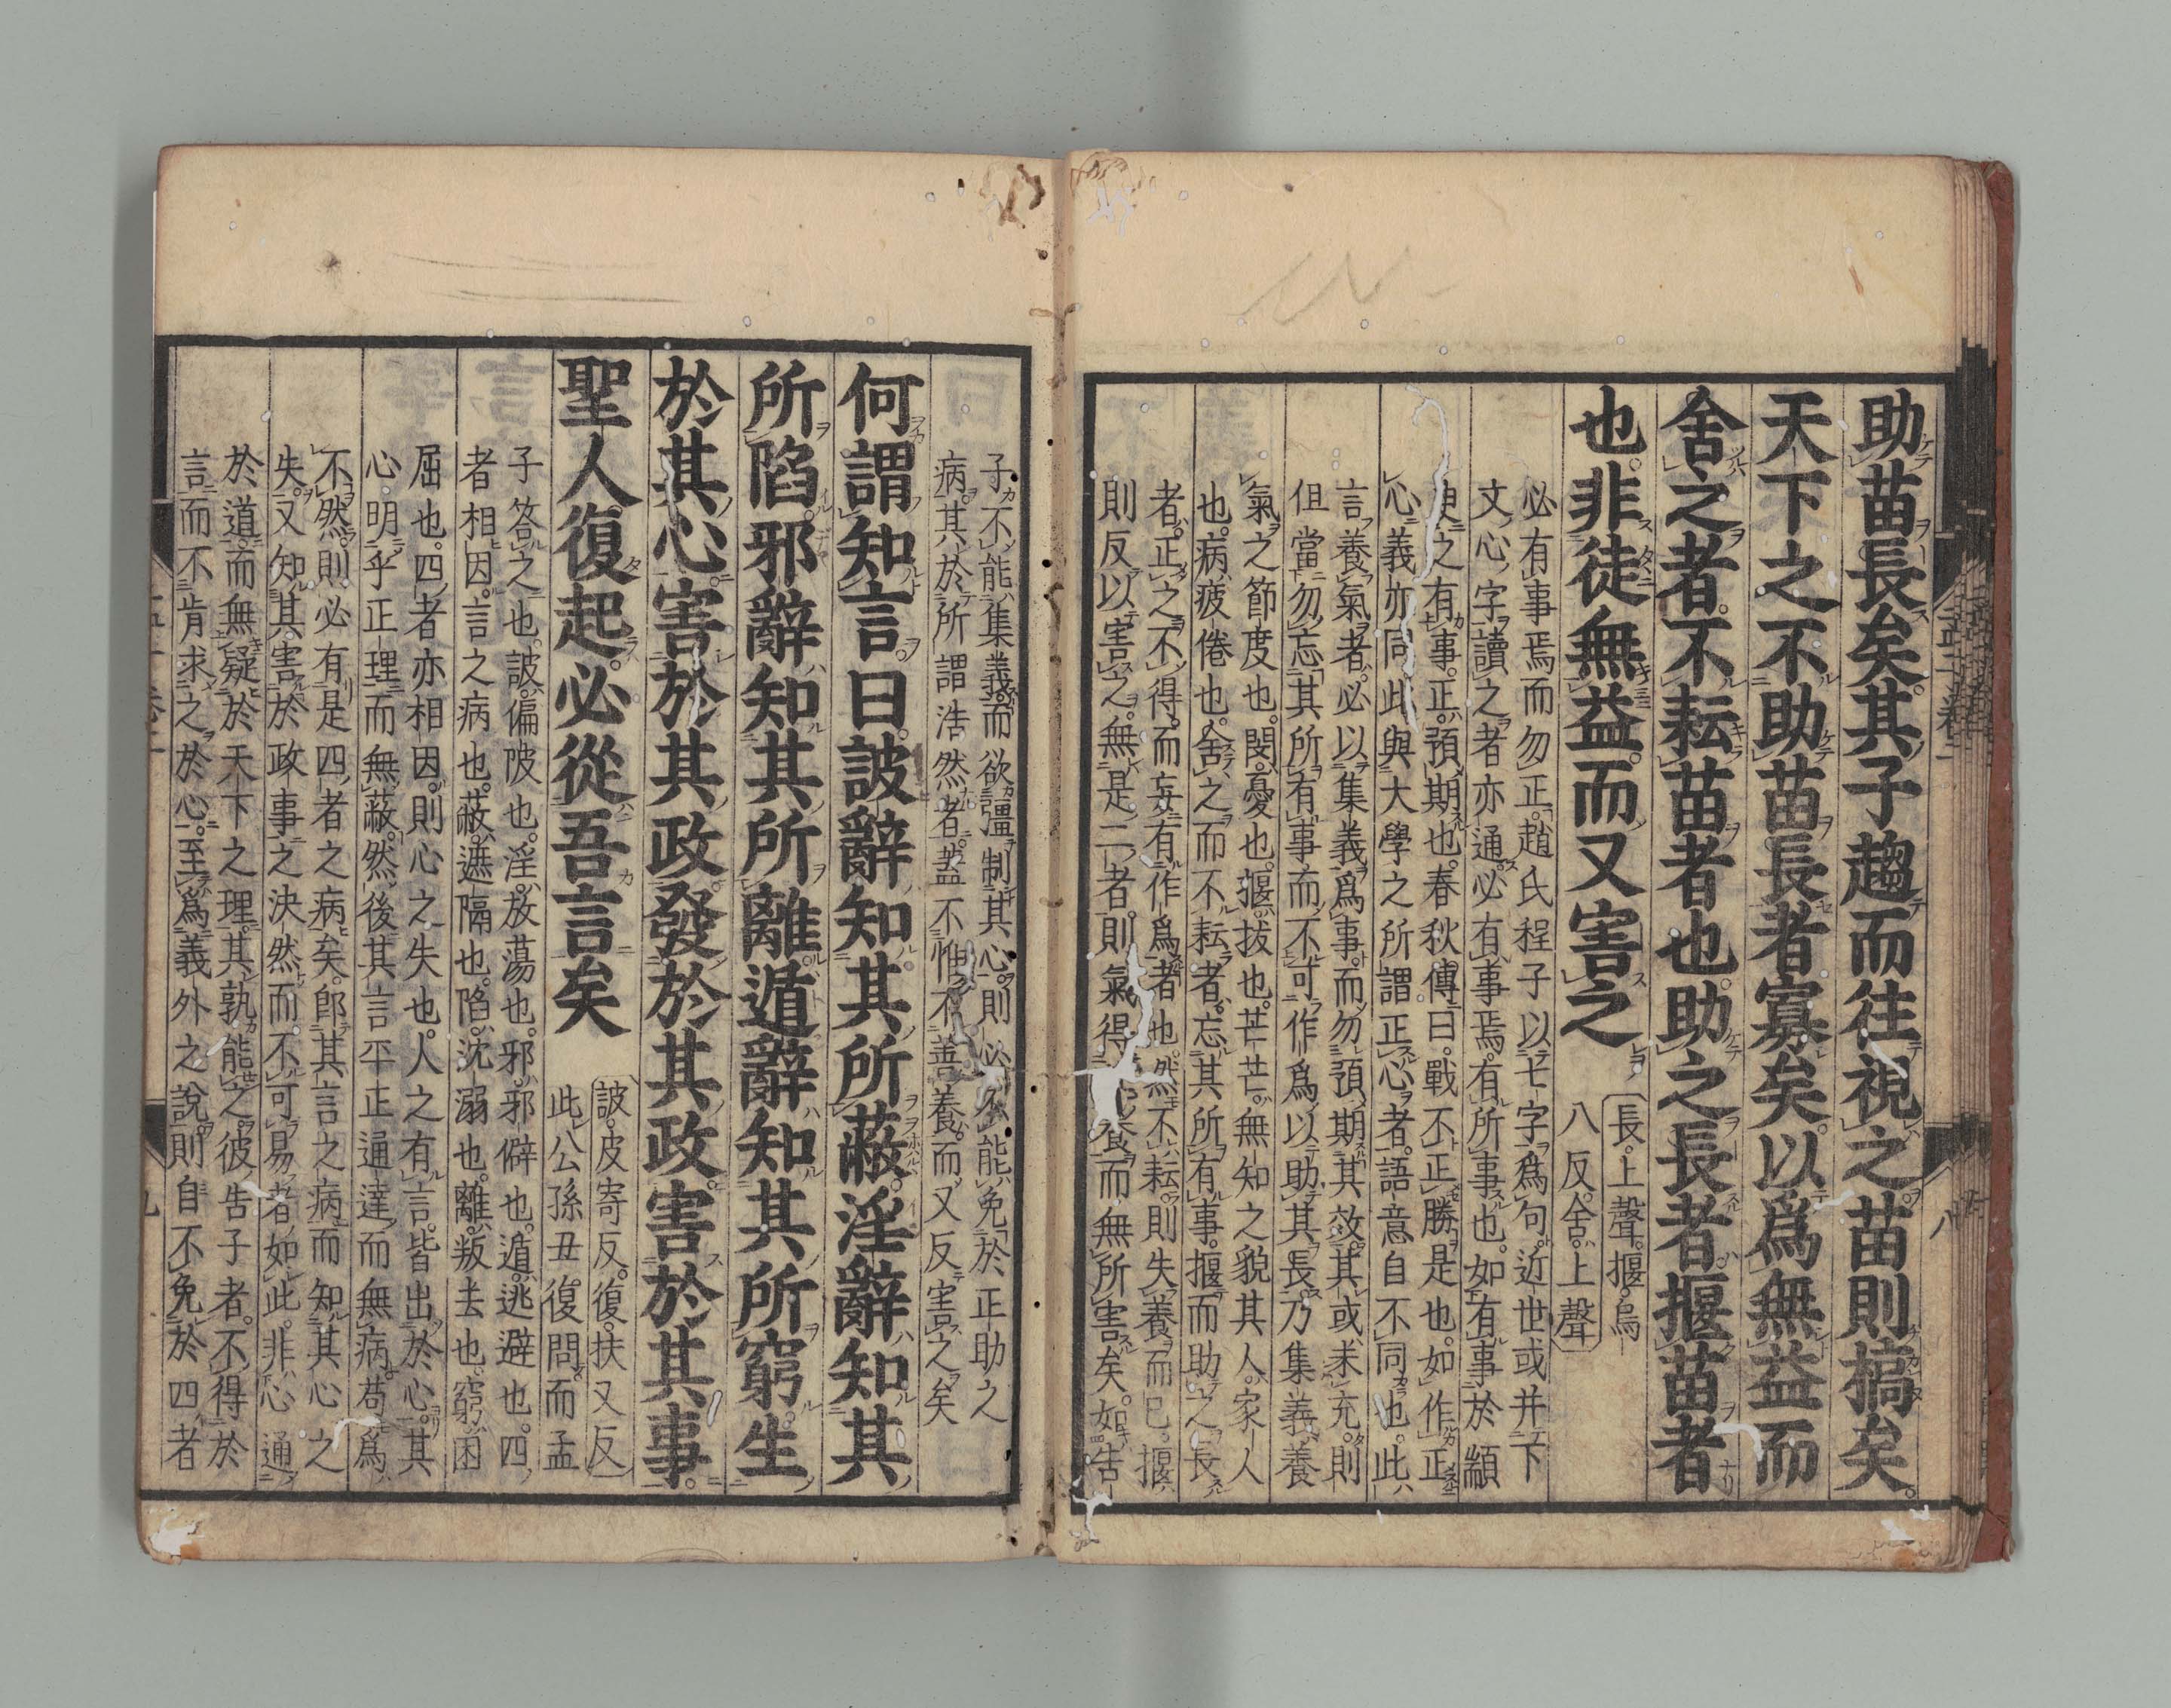 助苗長矣其子趨而往視之苗則槁矣
天下之不助苗長者寡矣以爲無益而
舍之者不耘苗者也助之長者揠苗者
也非徒無益而又害之
長上聲揠烏
八反舍上聲
必有事焉而勿正趙氏程子以七字爲句近世或并下
文心字讀之者亦通必有事焉有所事也如有事於顓
臾之有事正預期也春秋傳曰戰不正勝是也如作正
心義亦同此與大學之所謂正心者語意自不同也此
言養氣者必以集義爲事而勿預期其效其或未充則
但當勿忘其所有事而不可作爲以助其長乃集義養
氣之節度也閔憂也揠拔也芒芒無知之貌其人家人
也病疲倦也舍之而不耘者忘其所有事揠而助之長
者正之不得而妄有作爲者也然不耘則失養而已揠
則反以害之無是二者則氣得養而無所害矣如告
子不能集義而欲彊制其心則必不能免於正助之
病其於所謂浩然者蓋不惟不善養而又反害之矣
何謂知言曰詖辭知其所蔽淫辭知其
所陷邪辭知其所離遁辭知其所窮生
於其心害於其政發於其政害於其事
聖人復起必從吾言矣
詖皮寄反復扶又反
此公孫丑復問而孟
子答之也詖偏陂也淫放蕩也邪邪僻也遁逃避也四
者相因言之病也蔽遮隔也陷沈溺也離叛去也窮困
屈也四者亦相因則心之失也人之有言皆出於心其
心明乎正理而無蔽然後其言平正通達而無病苟爲
不然則必有是四者之病矣卽其言之病而知其心之
失又知其害於政事之決然而不可易者如此非心通
於道而無疑於天下之理其孰能之彼告子者不得於
言而不肯求之於心至爲義外之說則自不免於四者